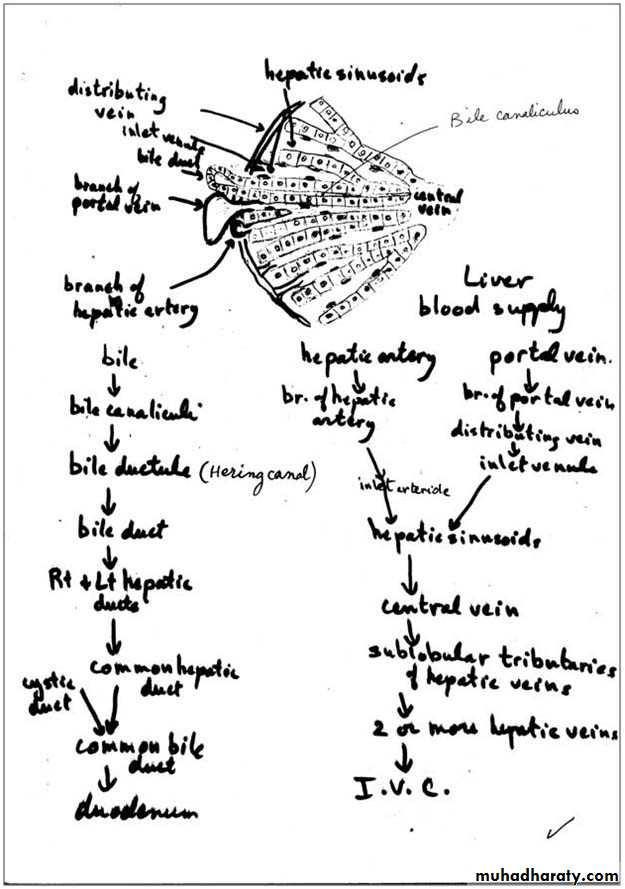 hepatic sinusoids
distributing
vein
inlet venule
bile duct
Bile canaliculus
branch of
portal vein
central
vein
branch of
hepatic artery
Liver
blood supply
bile
bile canaliculi
bile ductule (Hering canal)
bile duct
Rt + Lt hepatic
ducts
common hepatic
duct
cystic
duct
common bile
duct
duodenum
hepatic artery
br. of hepatic
artery
inlet arteriole
portal vein.
br. of portal vein
distributing vein
inlet venule
hepatic sinusoids
central vein
sublobular tributaries
of hepatic veins
2 or more hepatic veins
I.V.C.
muhadharaty.com